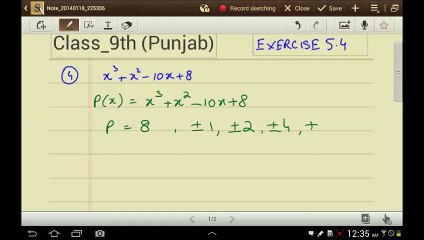 Note_20140118_226306
Record sketching
Class_9th (Punjab)
EXERCISE 5.4
④ x³+x²-10x+8
P(x) = x³+x²-10x+8
P = 8 , ±1, ±2, ±4, +
1/2
12:35 AM